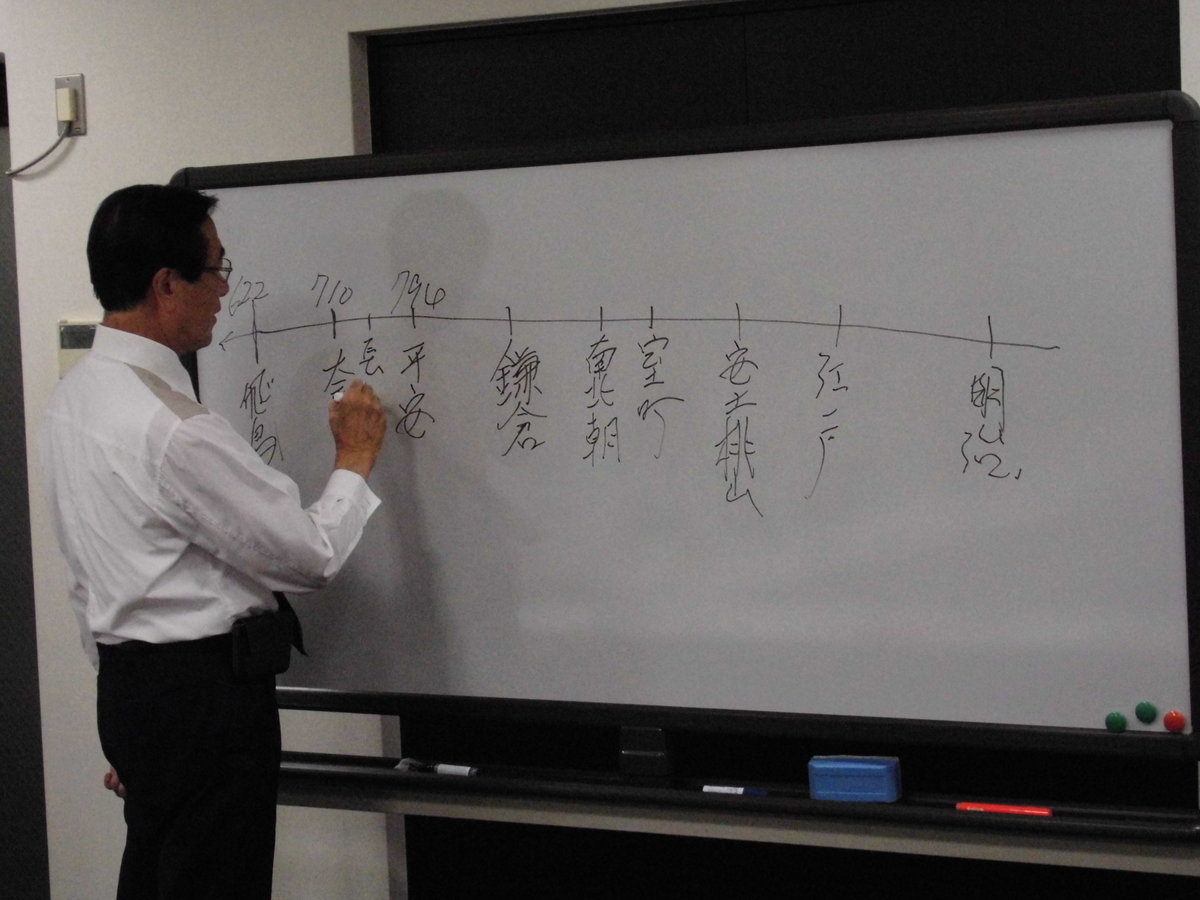 622
710
794
飛鳥
奈
長
平安
鎌倉
南北朝
室町
安土桃山
江戸
明治